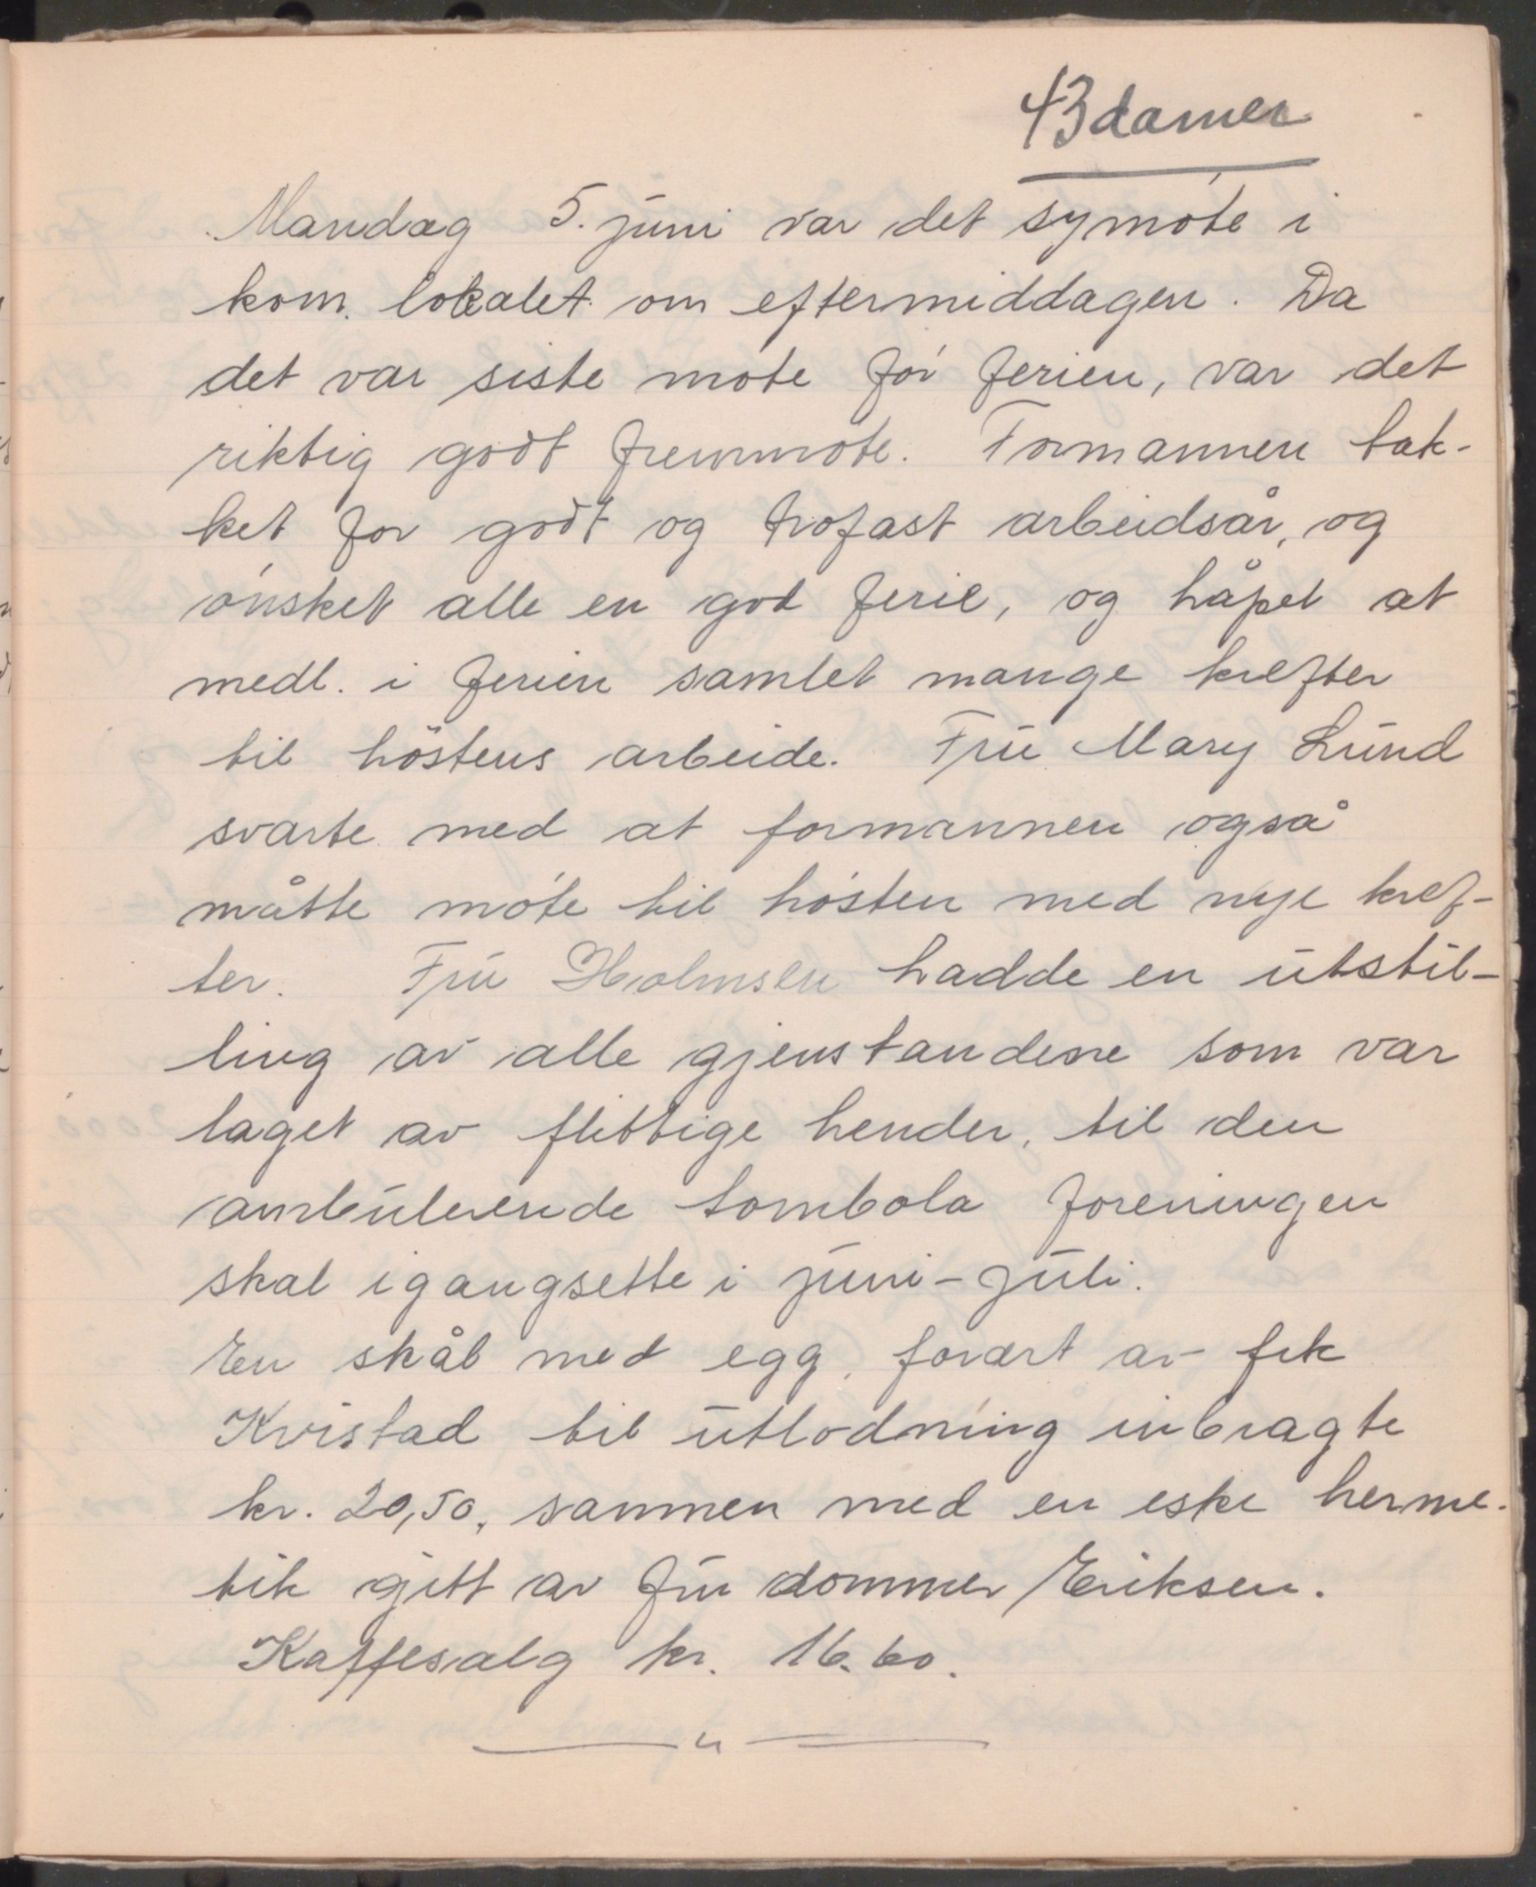 43 damer
Mandag 5. juni var det symöte i
kom. lokalet om eftermiddagen. Da
det var siste möte för ferien, var det
riktig godt fremmöte. Formannen tak-
ket for godt og trofast arbeidsår, og
önsket alle en god ferie, og håpet at
medl. i ferien samlet mange krefter
til höstens arbeide. Fru Mary Lund
svarte med at formannen også
måtte möte til hösten med nye kref-
ter. Fru Holmsen hadde en utstil-
ling av alle gjenstandene som var
laget av flittige hender, til den
ambulerende tombola foreningen
skal igangsette i juni-juli.
En skål med egg, forært av frk
Kvistad til utlodning inbragte
kr. 20,50, sammen med en eske herme-
tik gitt av fru dommer Eriksen.
Kaffesalg kr. 16.60.